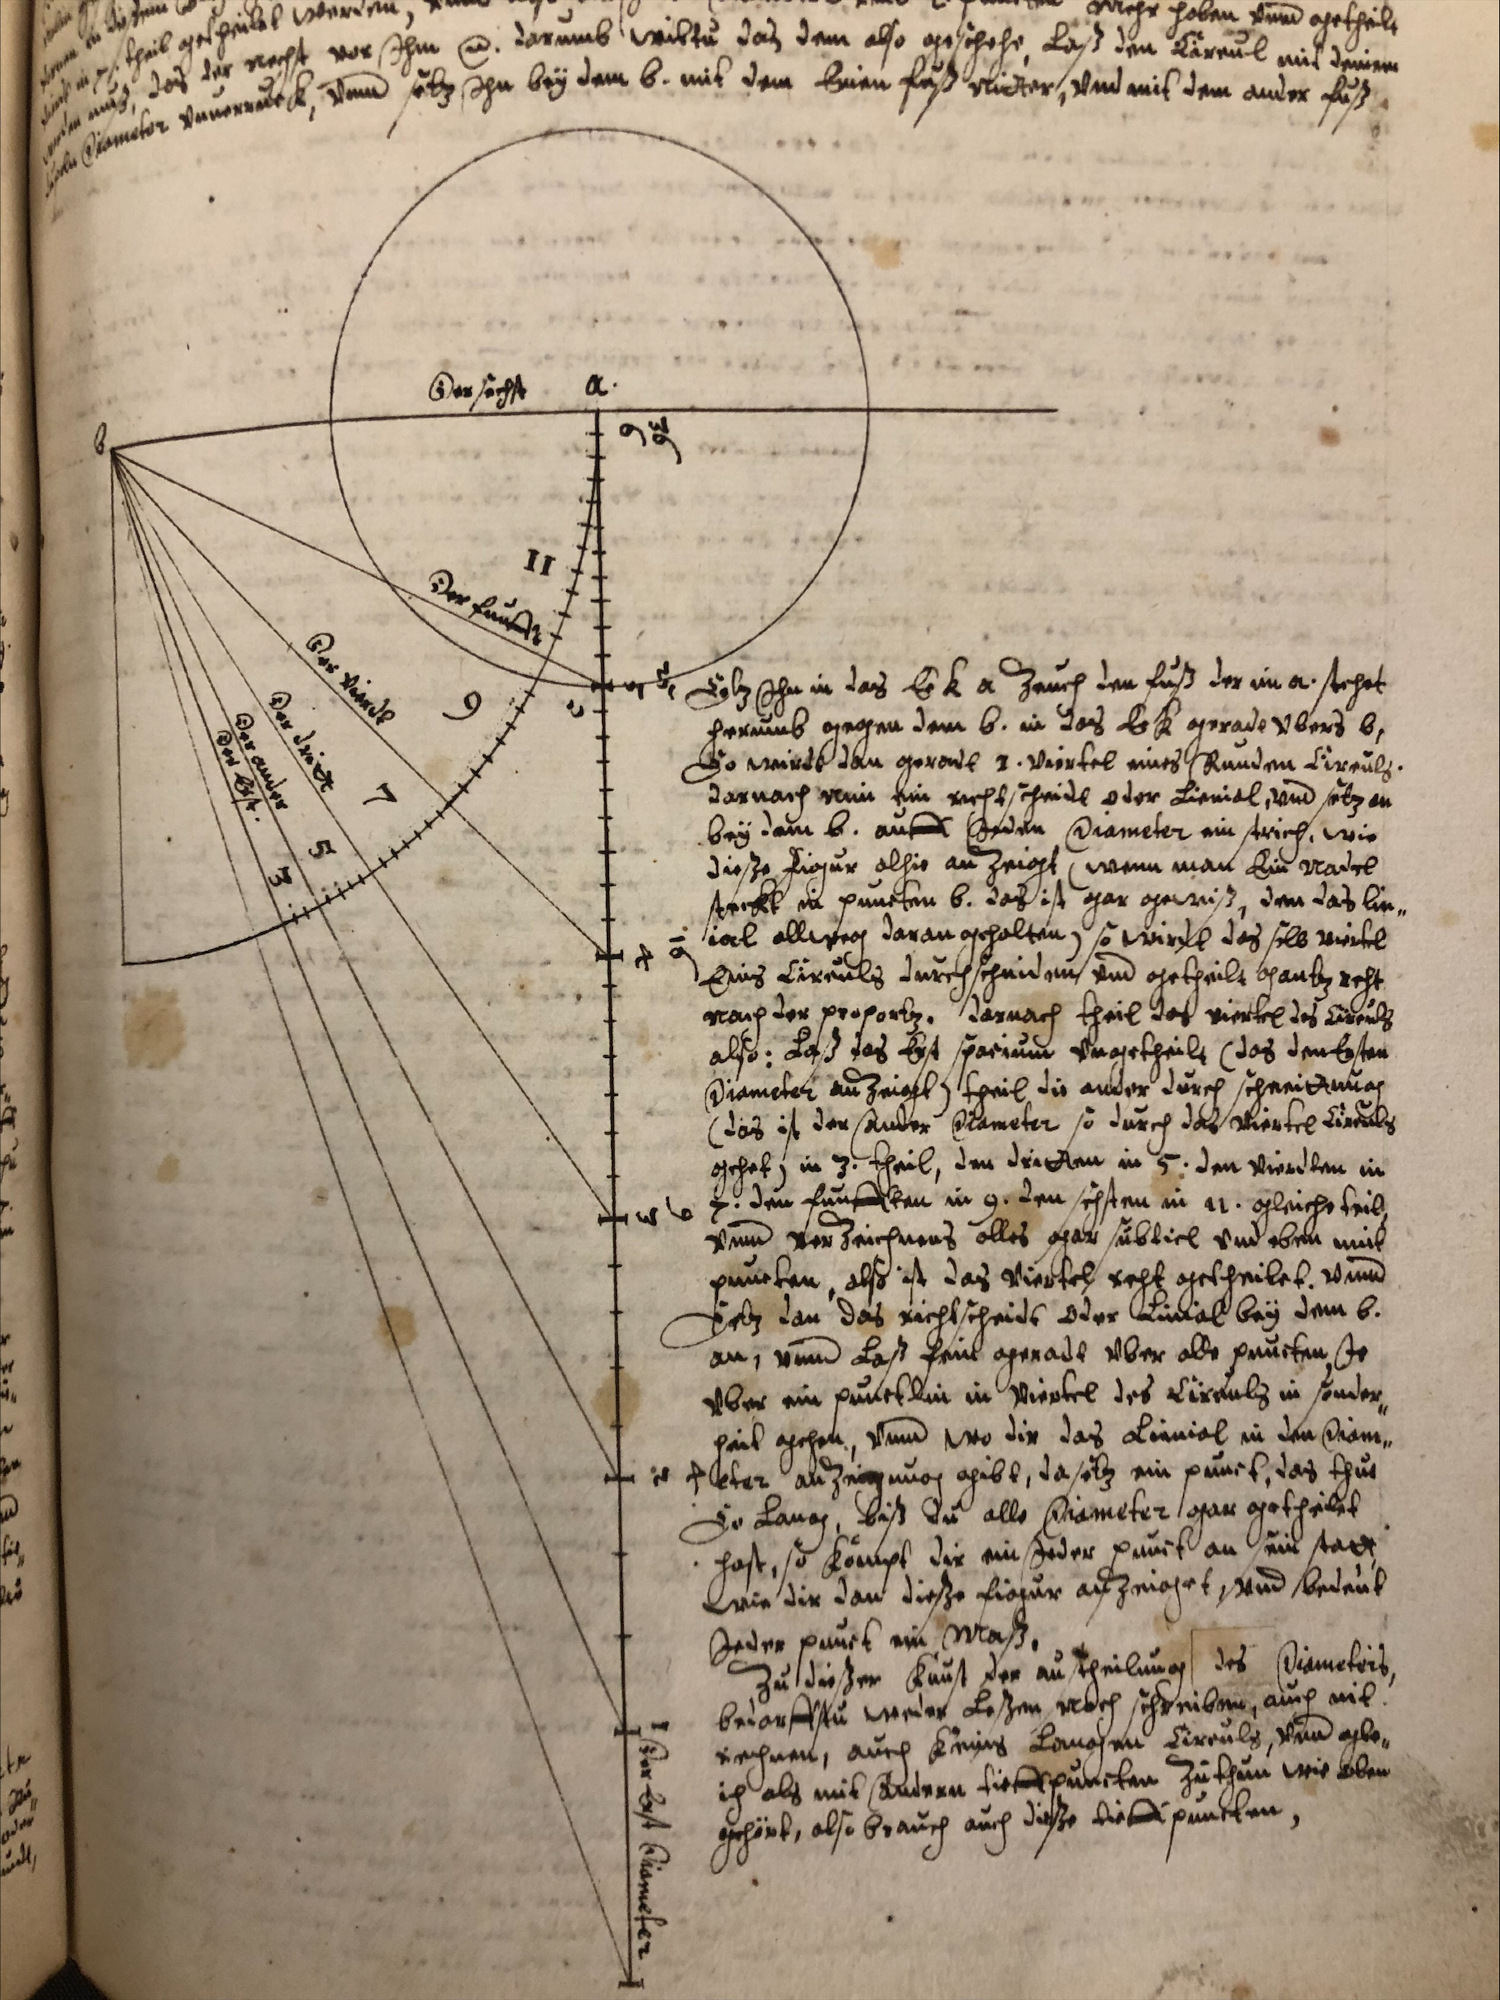 mehr haben vnnd getheilt
theil getheilet werden,
das der nechst vor Ihm darumb wiltu das dem also geschehe, Laß den Circul mit deinem
Diameter vnuerruckt, vnnd setz Ihn bey dem b. mit dem Einen fuß nider, vnd mit dem ander fuß
Der sechst
a.
b
6 36
11
Der funfft
5 25
c
9
Der vierdt
Der dritt
Der ander
Der Erst.
7
5
3
4 16
3 9
2 4
1
Der Erst Diameter
Setz Ihn in das Eck a Zeuch den fuß der im a. stehet
herumb gegen dem b. in das Eck gerade vbers b,
So wirdt dan geradt 1. viertel eines Runden Circuls.
darnach nim ein richtscheidt oder Linial, vnd setz an
bey dem b. auff Jeden Diameter ein strich, wie
dieße Figur alhie anzeigt (wenn man Ein nadel
steckt in puncten b. das ist gar gewiß, den das lin„
ial allweg daran gehalten) so wirdt das selb viertel
Eins Circuls durchschniden, vnd getheilt gantz recht
nach der proportz. darnach theil das viertel des Circuls
also: Laß das Erst spacium vngetheilt (das den Ersten
Diameter anzeigt) theil die ander durch schneittung
(das ist der Ander Diameter so durch das viertel Circuls
gehet) in 3. theil, den dritten in 5. den vierdten in
7. den funfften in 9. den sechsten in 11. gleiche teil,
vnnd verzeichnens alles gar subtiel vnd eben mit
puncten, also ist das viertel recht getheilet. vnnd
Setz dan das richtscheidt oder Linial bey dem b.
an, vnnd Laß fein geradt vber alle puncten, Je
vber ein punctlin in viertel des Circuls in sonder„
heit gehen, vnnd wo dir das Linial in den Diam„
eter anzeigung gibt, da setz ein punct, das thue
So Lang, biß du alle Diameter gar getheilet
hast, so kompt dir ein Jeder punct an sein statt,
wie dir dan dieße figur anzeiget, vnd bedeut
Jeder punct ein Maß.
Zu dießer Kunst der austheilung des Diameters,
bedarffstu weder Leßen noch schreiben, auch nit
rechnen, auch Keins Langen Circuls, vnnd gle„
ich als mit Andern tieffpuncten zuthun wie oben
gehört, also brauch auch dieße tieffpuncten,